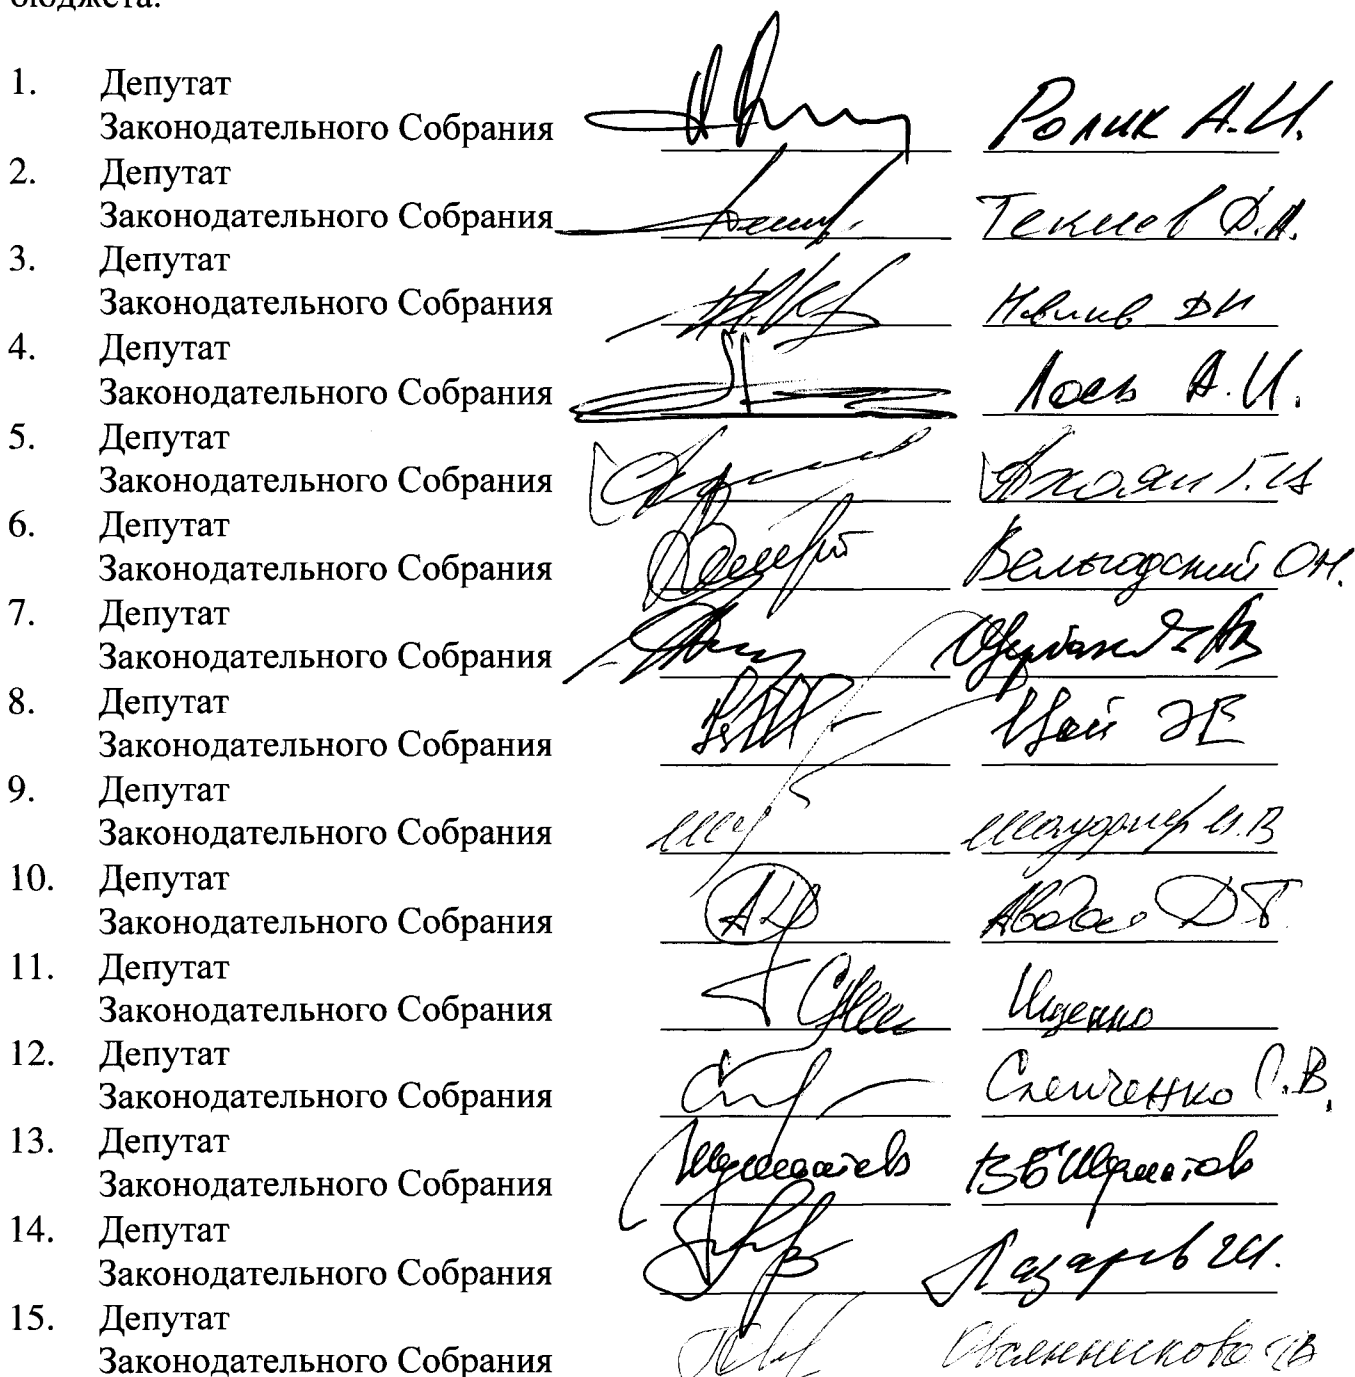 бюджета.
1. Депутат
Законодательного Собрания Ролик А.И.
2. Депутат
Законодательного Собрания Текиев Д.А.
3. Депутат
Законодательного Собрания
4. Депутат
Законодательного Собрания Лось А.И.
5. Депутат
Законодательного Собрания
6. Депутат
Законодательного Собрания Вельгодский О.Н.
7. Депутат
Законодательного Собрания
8. Депутат
Законодательного Собрания Цой Э Е
9. Депутат
Законодательного Собрания
10. Депутат
Законодательного Собрания
11. Депутат
Законодательного Собрания Ищенко
12. Депутат
Законодательного Собрания Слепченко С.В.
13. Депутат
Законодательного Собрания
14. Депутат
Законодательного Собрания Лазарев Г.И.
15. Депутат
Законодательного Собрания Овсянникова